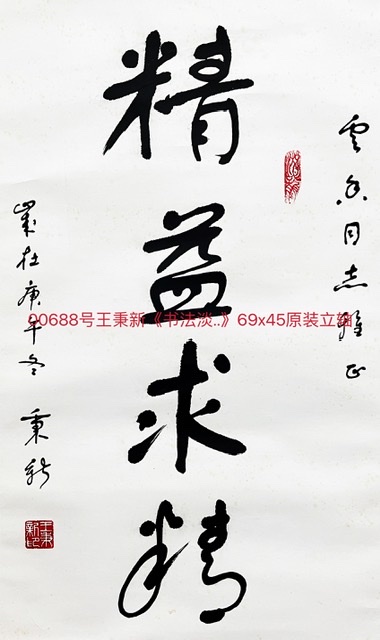 云香同志雅正
精益求精
岁在庚午冬
秉新
王秉新印
00688号王秉新《书法淡..》69x45原装立轴